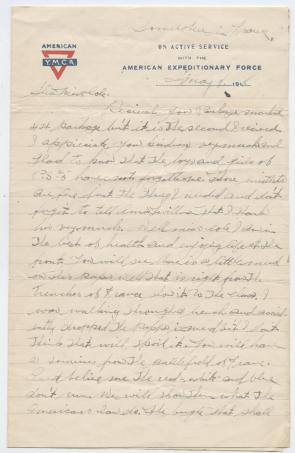 Somewhere in France,
AMERICAN
Y.M.C.A.
ON ACTIVE SERVICE
WITH THE
AMERICAN EXPEDITIONARY FORCE
May 1918
Received your package marked
4th package but it is the second I received
I appreciate your kindness very much and
Glad to know that the boys and girls of
have not forgotten me. Those
are fine just the thing I needed and dont
forget to tell that I thank
very much. I am in
the best of health and enjoying life at the
front. You will see there is a little mud
on this paper well that is right from the
Trenches of France
was walking through a trench and accid-
ently dropped the paper in mud but I dont
think that will spoil it. You will have
a souvenir from the battlefield of France.
And believe me the red-white and blue
don't run. We will show them what the
Americans can do. The bugle that shall